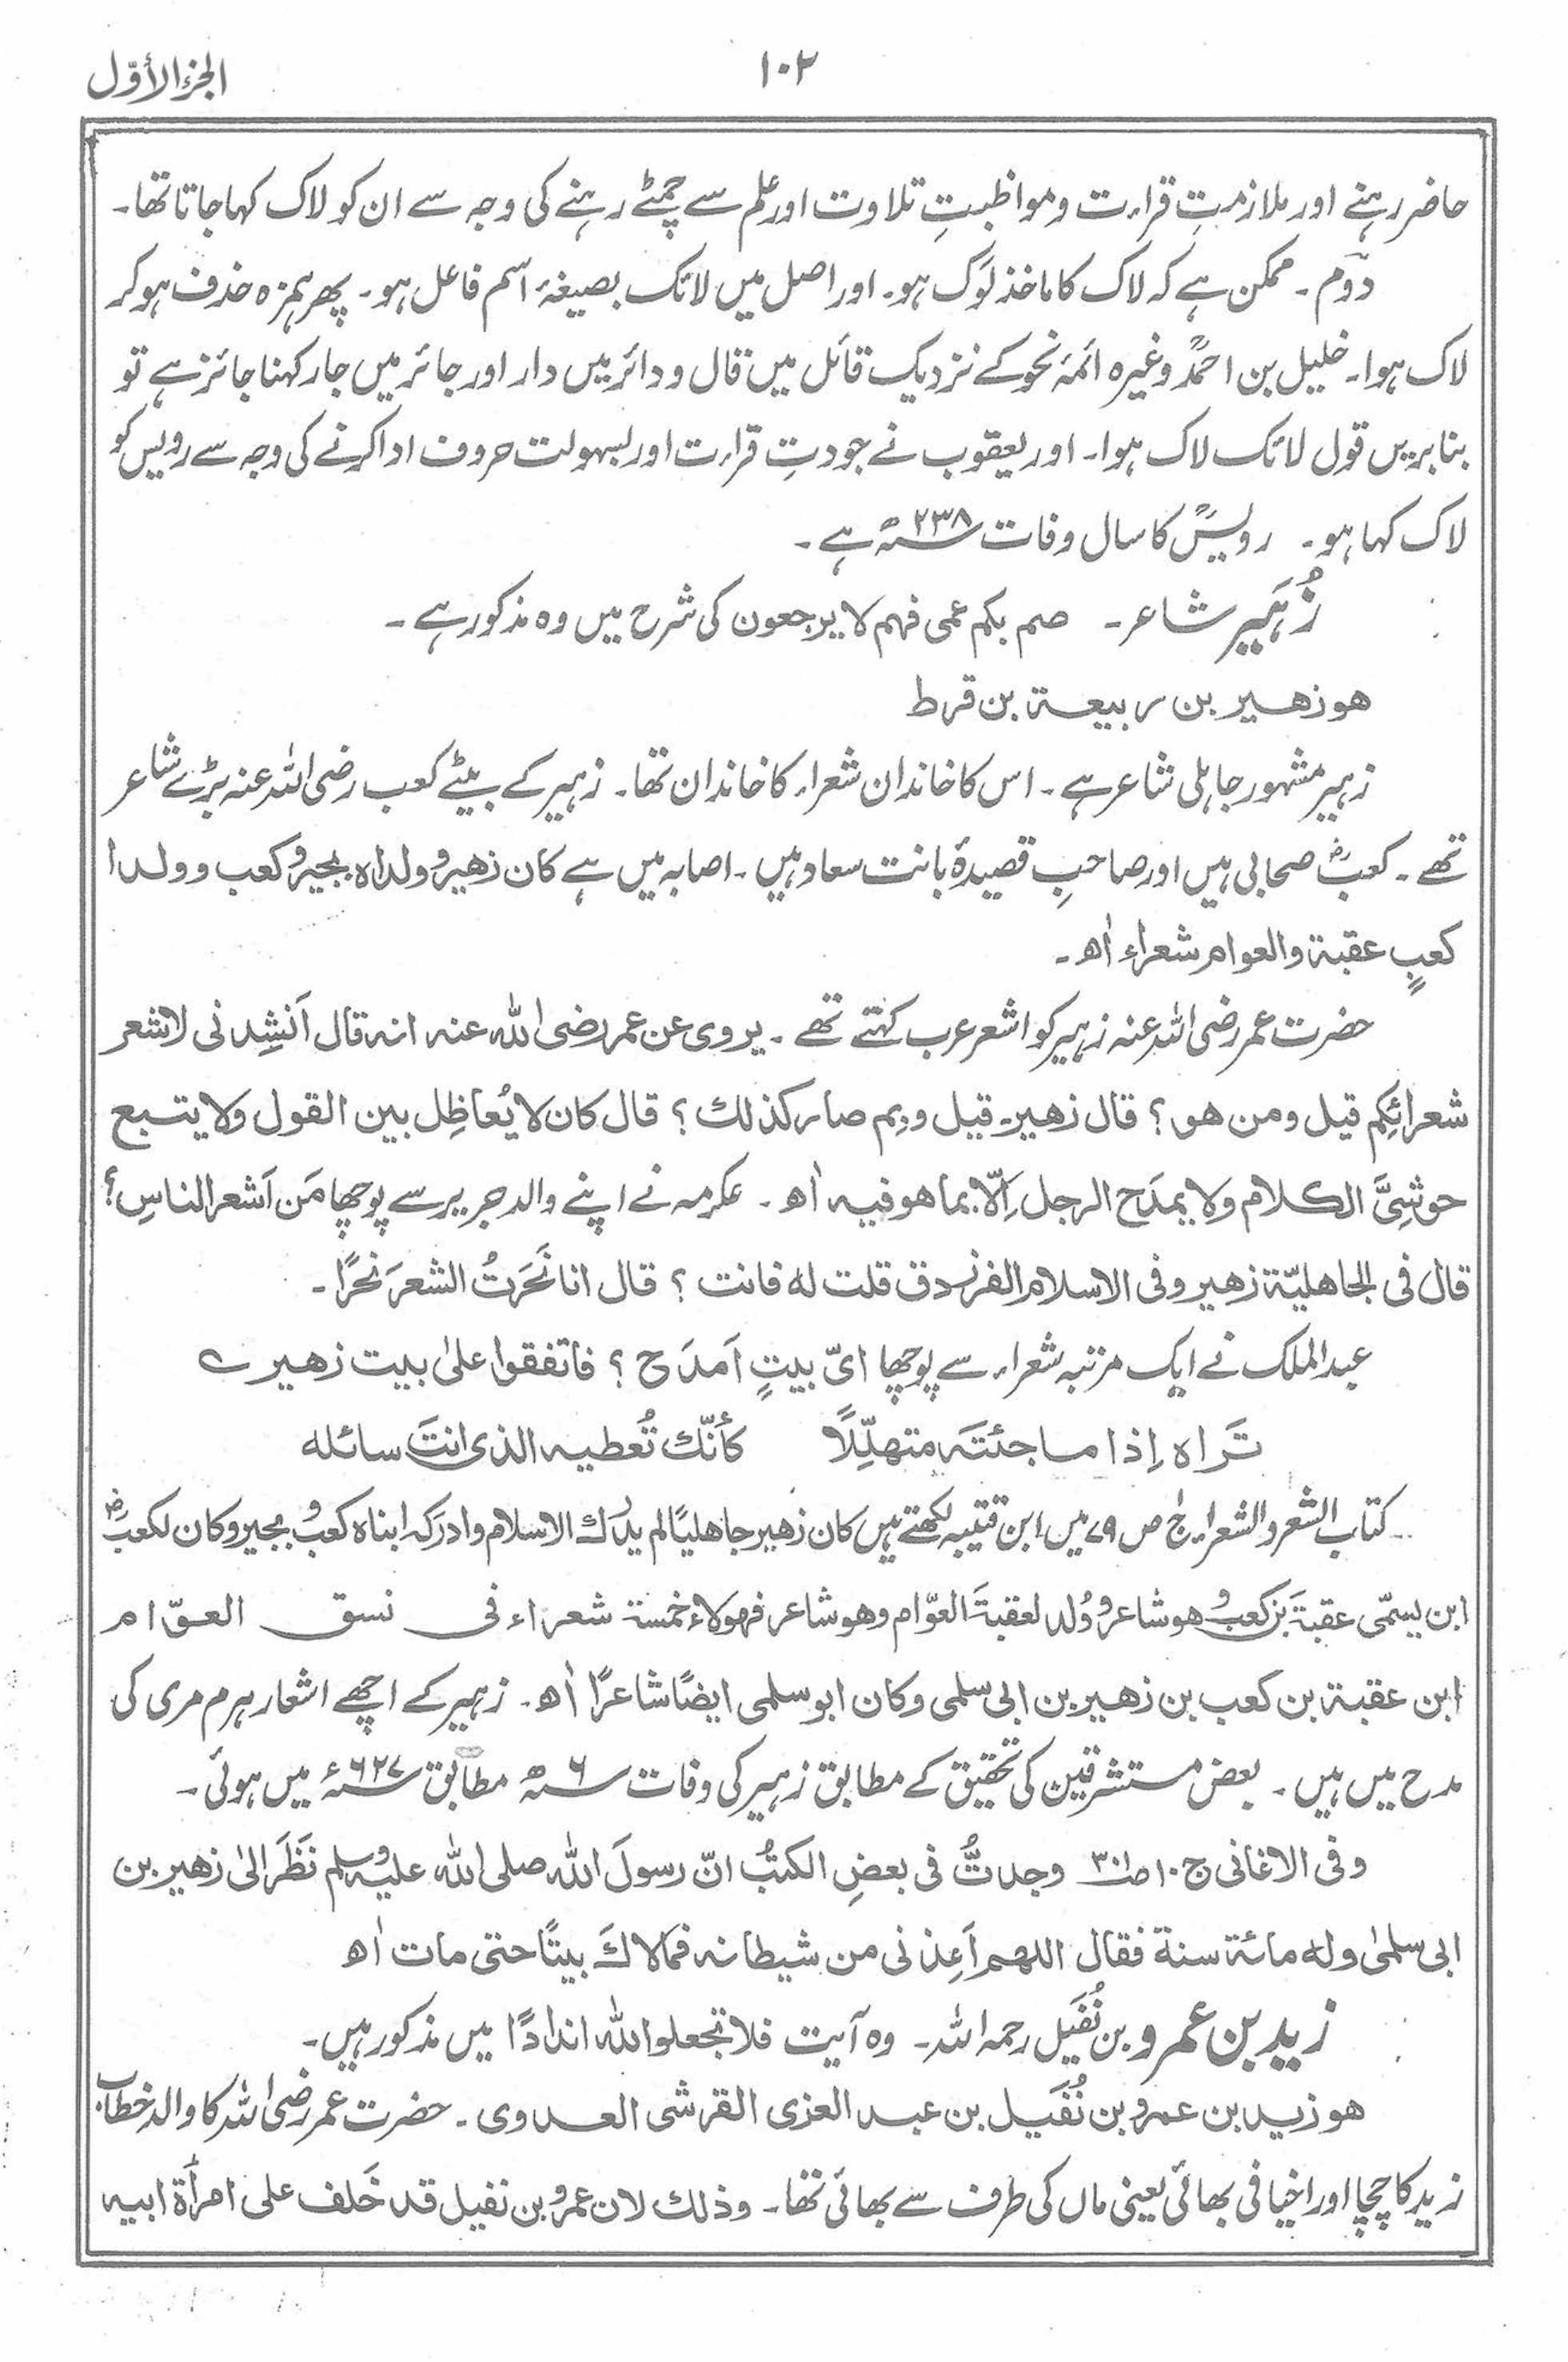 الجزء الأوّل
۱۰۲
حاضر رہنے اور ملازمتِ قراءت و مواظبتِ تلاوت اور علم سے چمٹے رہنے کی وجہ سے ان کو لاک کہا جاتا تھا۔
دوّم۔ ممکن ہے کہ لاک کا ماخذ لَوک ہو۔ اور اصل میں لائک بصیغۂ اسم فاعل ہو۔ پھر ہمزہ حذف ہو کر
لاک ہوا۔ خلیل بن احمدؒ وغیرہ ائمۂ نحو کے نزدیک قائل میں قال و دائر میں دار اور جائر میں جار کہنا جائز ہے تو
بنا بریں قول لائک لاک ہوا۔ اور یعقوب نے جودتِ قراءت اور بسہولت حروف ادا کرنے کی وجہ سے رویس کو
لاک کہا ہو۔ رویسؒ کا سال وفات ۲۳۸ھ ہے۔
زُہَیر شاعر۔ صم بکم عمی فہم لا یرجعون کی شرح میں وہ مذکور ہے۔
ھو زھیر بن ربیعۃ بن قرط
زہیر مشہور جاہلی شاعر ہے۔ اس کا خاندان شعراء کا خاندان تھا۔ زہیر کے بیٹے کعب رضی اللہ عنہ بڑے شاعر
تھے۔ کعبؓ صحابی ہیں اور صاحبِ قصیدۂ بانت سعاد ہیں۔ اصابہ میں ہے کان زھیر و ولداہ بجیر و کعب و ولدا
کعبٍ عقبۃ والعوام شعراء اٰھ۔
حضرت عمر رضی اللہ عنہ زہیر کو اشعر عرب کہتے تھے۔ یروی عن عمر رضی اللہ عنہ انہ قال اَنشِدنی لاشعر
شعرائِکم قیل ومن ھو؟ قال زھیر۔ قیل وبم صار کذلك؟ قال کان لا یُعاظِل بین القول ولا یتبع
حوشِیَّ الکلام ولا یمدَح الرجل اِلّا بما ھو فیہ اٰھ۔ عکرمہ نے اپنے والد جریر سے پوچھا مَن اَشعر الناسِ؟
قال فی الجاھلیّۃ زھیر وفی الاسلام الفرزدق قلت لہ فانت؟ قال انا نَحَرتُ الشعرَ نحرًا۔
عبدالملک نے ایک مرتبہ شعراء سے پوچھا ایّ بیتٍ اَمدَح؟ فاتفقوا علیٰ بیت زھیر ؎
تَراہ اِذا ما جئتَہ متھلِّلًا کأنّك تُعطیہ الذی انتَ سائلہ
کتاب الشعر والشعراء ج۱ ص ۷۹ میں ابن قتیبہ لکھتے ہیں کان زھیر جاھلیًا لم یدرك الاسلام وادرکہ ابناہ کعبٌ و بجیر وکان لکعبؓ
ابن یسمّی عقبۃَ بن کعب و ھو شاعر و وُلد لعقبۃَ العوّام وھو شاعر فھولاء خمسۃ شعراء فی نسق العوّام
ابن عقبۃ بن کعب بن زھیر بن ابی سلمی وکان ابو سلمی ایضًا شاعرًا اٰھ۔ زہیر کے اچھے اشعار ہرم مری کی
مدح میں ہیں۔ بعض مستشرقین کی تحقیق کے مطابق زہیر کی وفات ۶ھ مطابق ۶۲۷ء میں ہوئی۔
وفی الاغانی ج۱۰ ص۳۰۱ وجدتُّ فی بعضِ الکتبُ انّ رسولَ اللہ صلی اللہ علیہ وسلم نَظَرَ الیٰ زھیر بن
ابی سلمیٰ ولہ مائۃ سنۃ فقال اللھم اَعِذنی من شیطانہ فما لاكَ بیتًا حتی مات اٰھ
زید بن عمرو بن نُفَیل رحمہ اللہ۔ وہ آیت فلا تجعلوا للہ اندادًا میں مذکور ہیں۔
ھو زید بن عمرو بن نُفَیل بن عبد العزی القرشی العدوی۔ حضرت عمر رضی اللہ کا والد خطاب
زید کا چچا اور اخیافی بھائی یعنی ماں کی طرف سے بھائی تھا۔ وذلك لان عمرو بن نفیل قد خَلف علی امرأۃ ابیہ